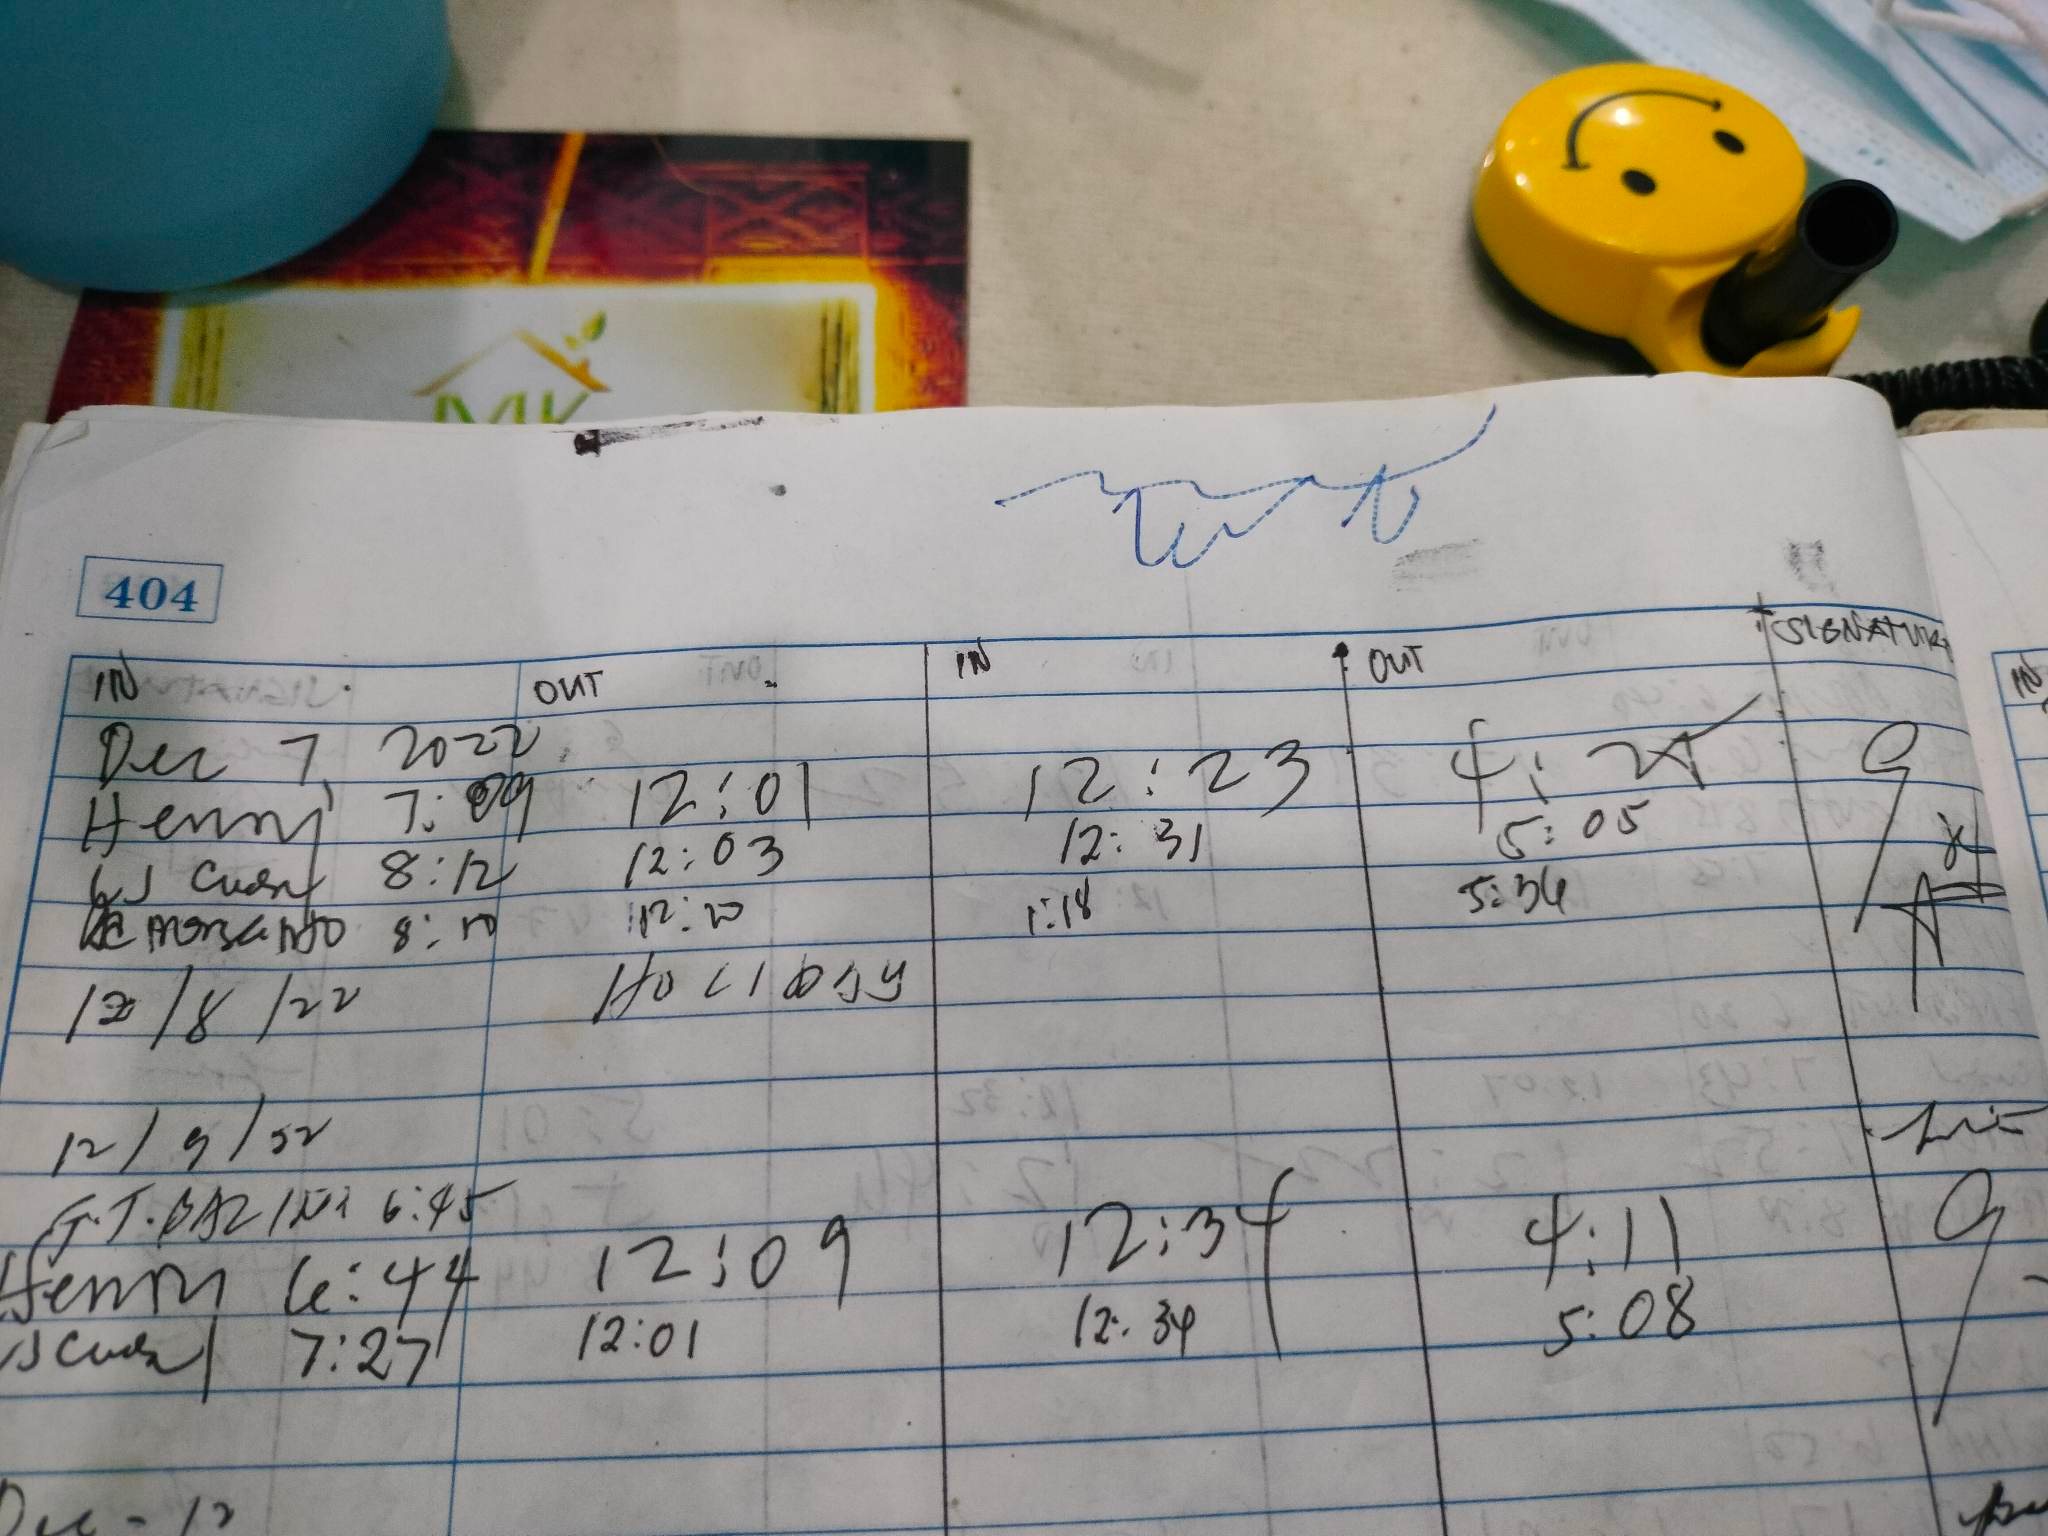 MK
404
IN OUT IN OUT SIGNATURE
Dec 7, 2022
Henry 7:09 12:01 12:23 4:25
8:12 12:03 12:31 5:05
8:10 12:20 1:18 5:36
12/8/22 HOLIDAY
12/9/22
6:45
Henry 6:44 12:09 12:34 4:11
7:27 12:01 12:34 5:08
Dec - 12
IN